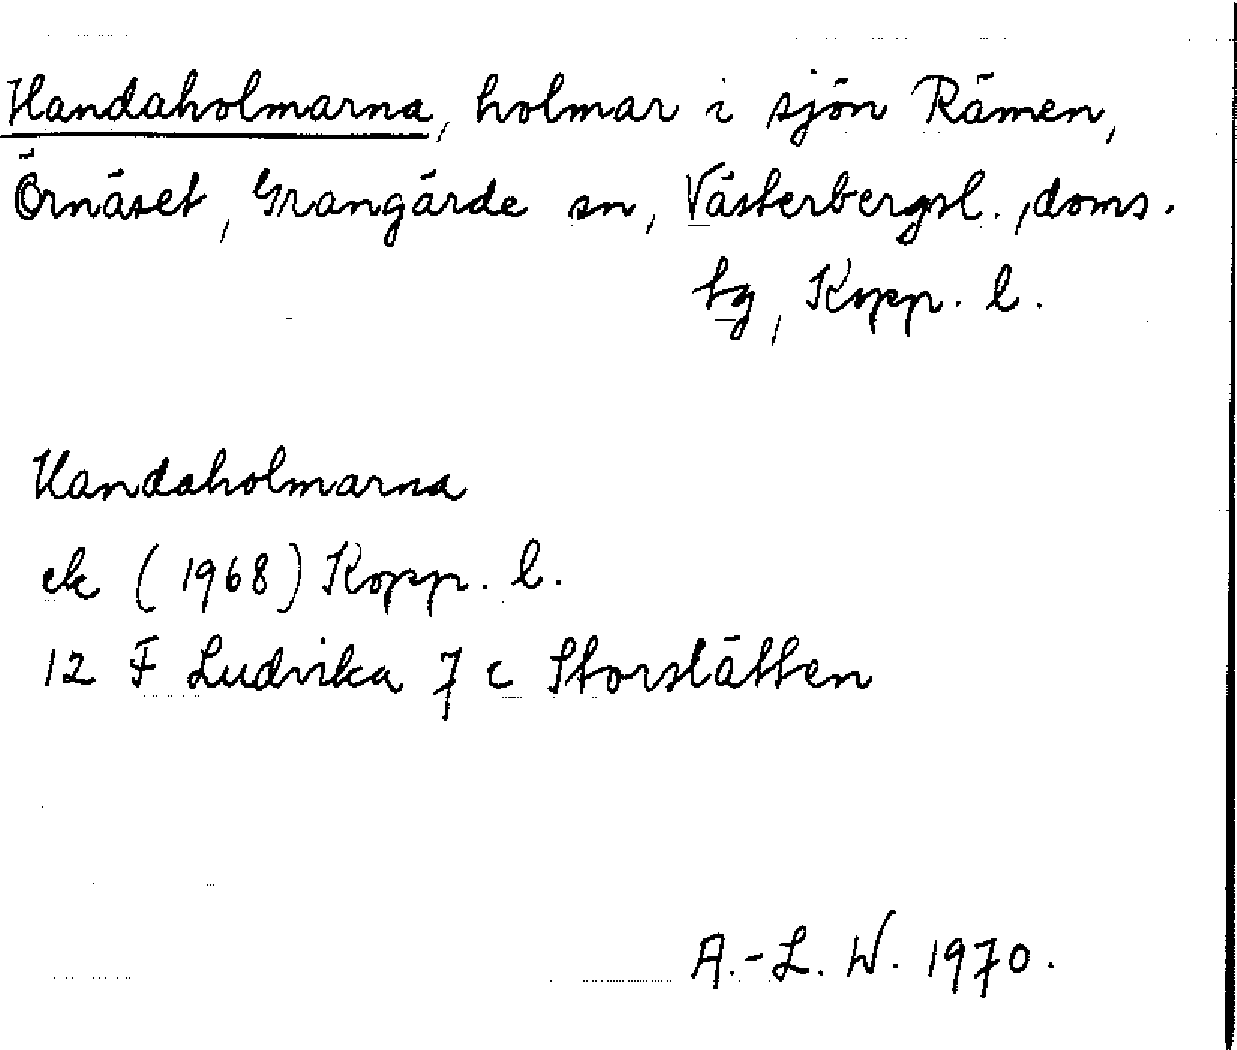 Handaholmarna, holmar i sjön Rämen,
Örnäset, Grangärde sn, Västerbergsl., doms.
hg, Kopp. l.
Handaholmarna
ek (1968) Kopp. l.
12 F Ludvika 7 c Storslätten
A.-L. W. 1970.